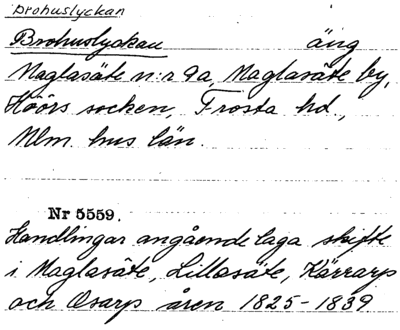 Brohuslyckan
Brohuslyckan äng
Maglasäte n:r 9a, Maglasäte by,
Höörs socken, Frosta hd.,
Mlm. hus län.
Nr 5559.
Handlingar angående laga skifte
i Maglasäte, Lillasäte, Kärrarp
och Osarp åren 1825-1839